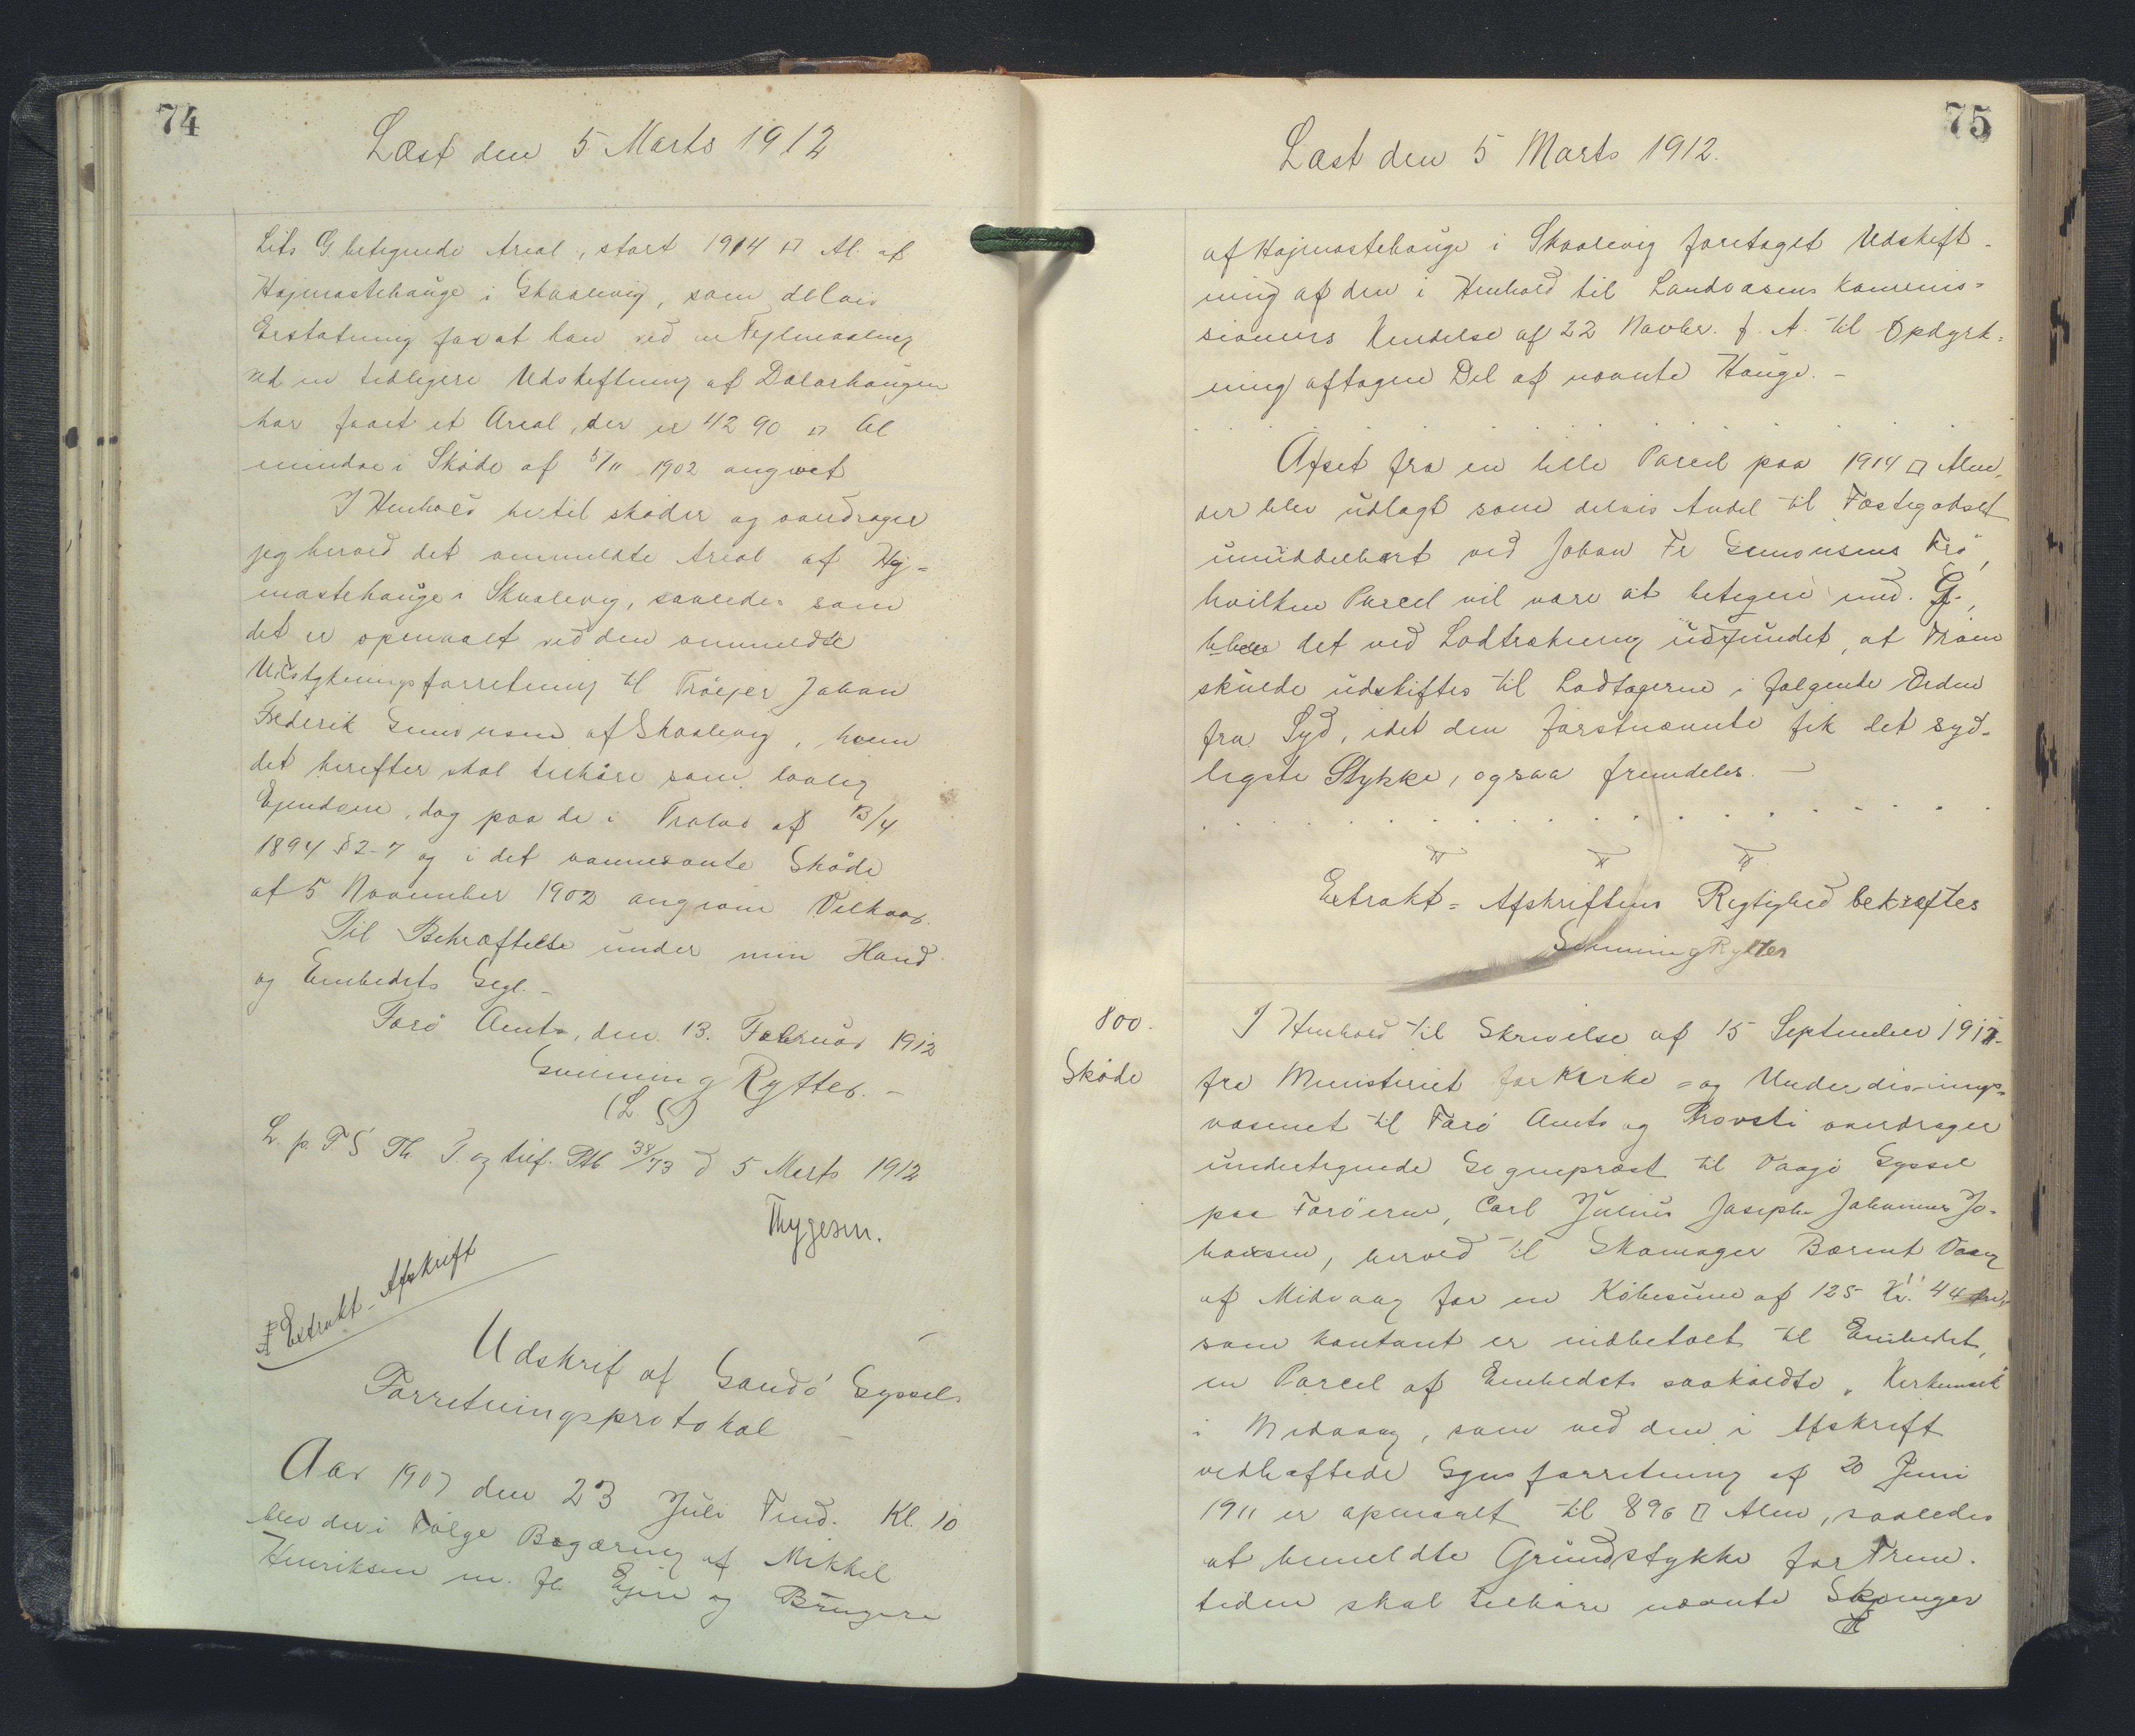 74
Læst den 5 Marts 1912
Litr G betegnede Areal, stort 1914 □ Al. af
Højmastehauge i Skaalevig, som delvis
Erstatning for at han ved en Fejlmaaling
ved en tidligere Udskiftning af Dalarhaugen
har faaet et Areal, der er 4290 □ Al
mindre i Skøde af 5/11 1902 angivet
I Henhold hertil skøder og overdrager
jeg herved det ommeldte Areal af Høj=
mastehauge i Skaalevig, saaledes som
det er opmaalt ved den ommeldte
Udstykningsforretning til Trøejer Johan
Frederik Simonsen af Skaalevig, hvem
det herefter skal tilhøre som lovlig
Ejendom, dog paa de i Fralov af 13/4
1894 § 2-7 og i det ovennævnte Skøde
af 5 November 1902 angivne Vilkaar.
Til Bekræftelse under min Haand
og Embedets Segl. –
Færø Amt, den 13. Februar 1912
Svenning Rytter. –
(L. S.)
L. p. F S Th. J. og tilf. Ptb 38/73 d 5 Marts 1912
Thygesen.
Extrakt-Afskrift
Udskrif af Sandø Syssels
Forretningsprotokol –
Aar 1907 den 23 Juli Fmd. Kl. 10
blev der i Følge Begæring af Mikkel
Henriksen m. fl. Ejere og Brugere
75
Læst den 5 Marts 1912.
af Højmastehauge i Skaalevig foretaget Udskift-
ning af den i Henhold til Landvæsens Kommis=
sionens Kendelse af 22 Novbr. f. A. til Opdyrk=
ning aftagne Del af nævnte Hauge. –
Afset fra en lille Parcel paa 1914 □ Alen,
der blev udlagt som delvis Andel til Fæstegodset
umiddelbart ved Johan Fr Simonsens Trø,
hvilken Parcel vil være at betegne med. G.,
blev det ved Lodtrækning udfundet, at Trøen
skulde udskiftes til Lodtagerne i følgende Orden
fra Syd, idet den førstnævnte fik det syd-
ligste Stykke, og saa fremdeles. –
Extrakt= Afskriftens Rigtighed bekræftes
Svenning Rytter
800.
Skøde
I Henhold til Skrivelse af 15 September 1911
fra Ministeriet for Kirke = og Undervisnings=
væsenet til Færø Amt og Provsti overdrager
undertegnede Sognepræst til Vaagø Syssel
paa Færøerne, Carl Julius Joseph Johannes Jo-
hansen, herved til Skomager Bærent Vaag
af Midvaag for en Købesum af 125 Kr. 44 Øre,
som kontant er indbetalt til Embedet,
en Parcel af Embedets saakaldte „Kirkemark"
i Midvaag, som ved den i Afskrift
vedhæftede Synsforretning af 20 Juni
1911 er opmaalt til 896 □ Alen, saaledes
at bemeldte Grundstykke for Frem-
tiden skal tilhøre nævnte Skomager